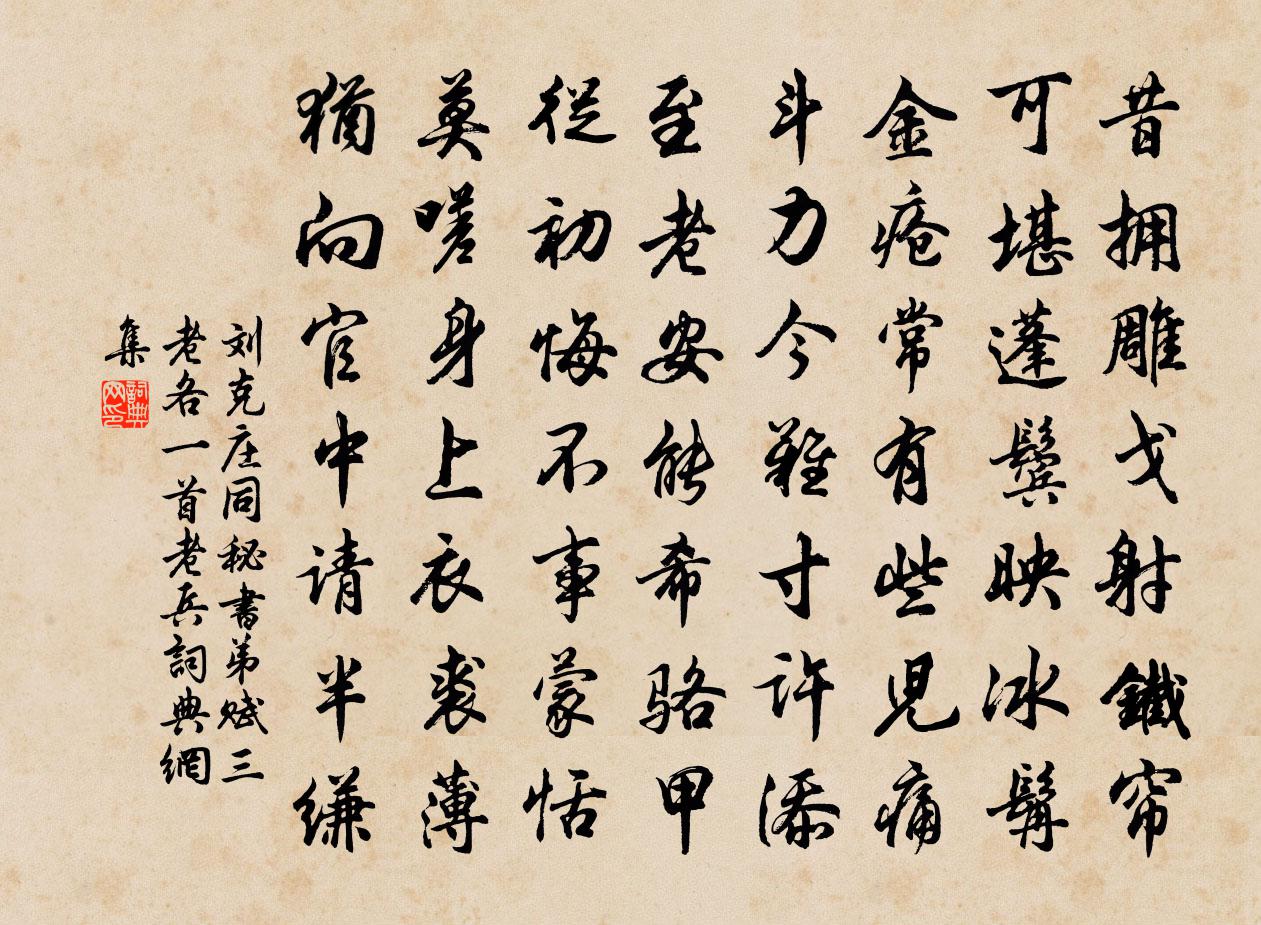 昔拥雕戈射鐵帘
可堪蓬鬓映冰髯
金疮常有些児痛
斗力今難寸许添
至老安能希骆甲
從初悔不事蒙恬
莫嗟身上衣裘薄
猶向官中请半缣
刘克庄同秘書弟赋三
老各一首老兵詞典網
集
詞典
网印